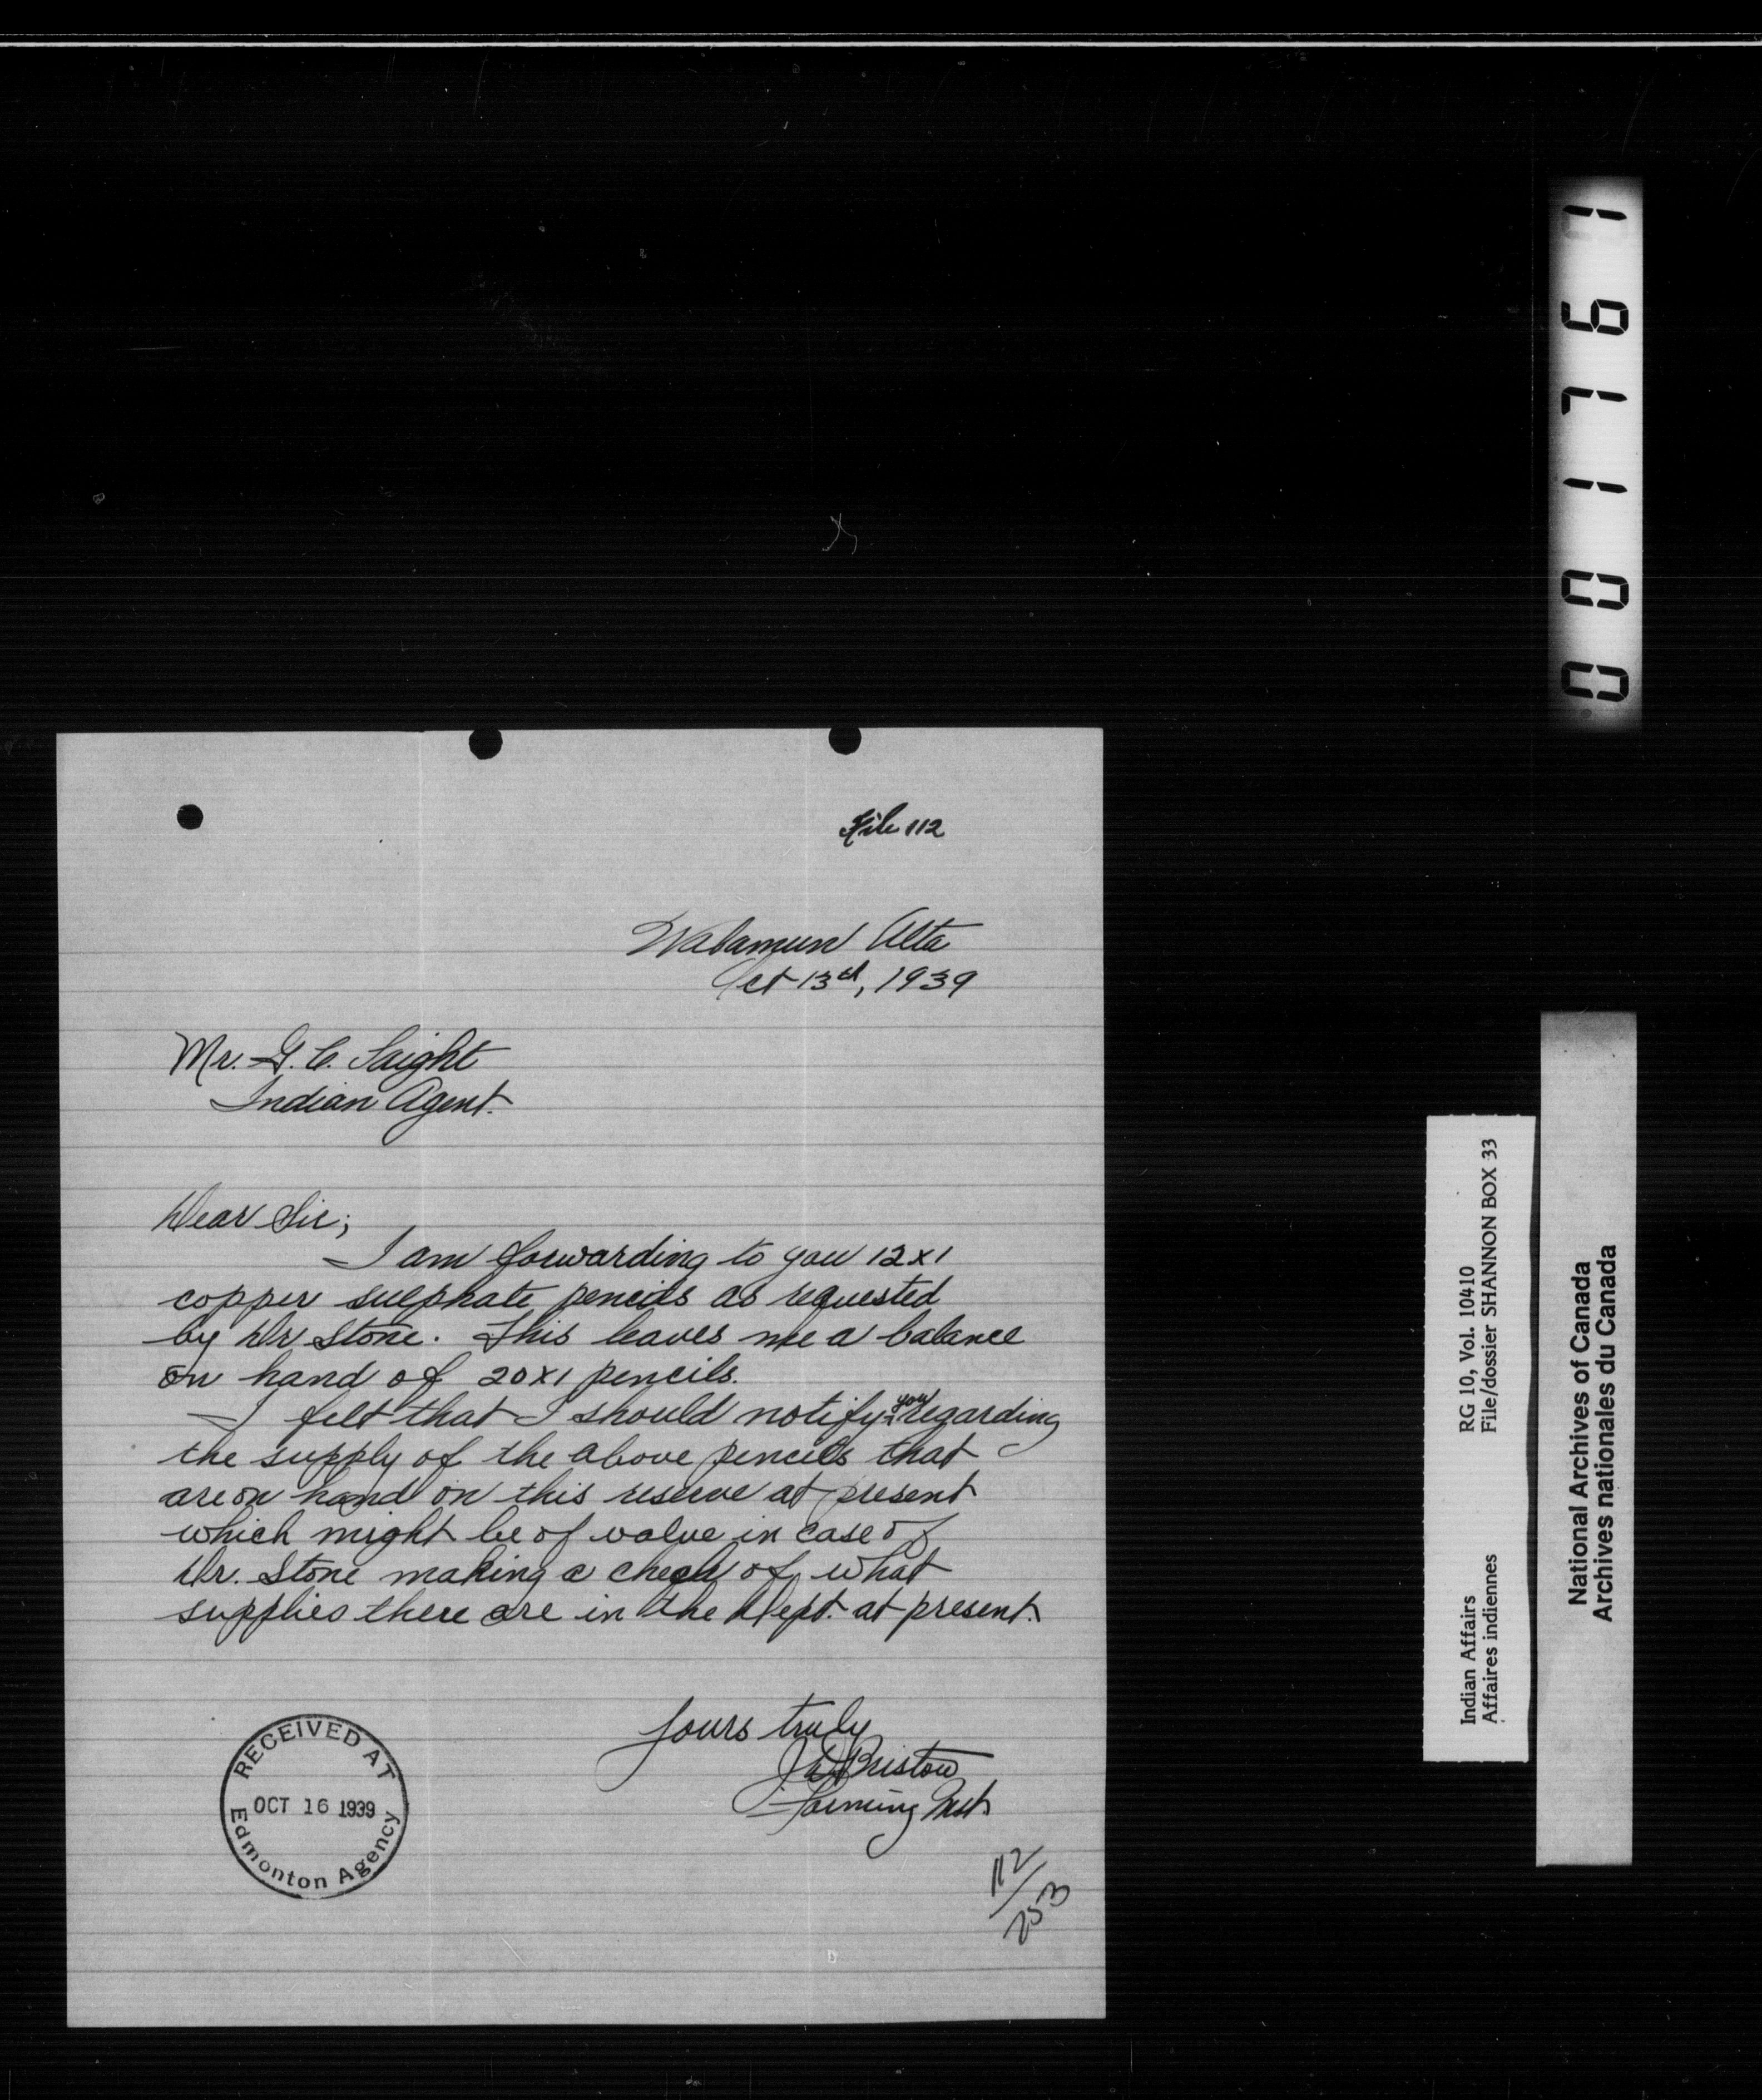 File 112
Wabamun Alta
Oct 13th, 1939
Mr. G. C. Laight
Indian Agent.
Dear Sir;
I am forwarding to you 12x1
copper sulphate pencils as requested
by Dr. Stone. This leaves me a balance
on hand of 20x1 pencils.
I felt that I should notify you regarding
the supply of the above pencils that
are on hand on this reserve at present
which might be of value in case of
Dr. Stone making a check of what
supplies there are in the Dept. at present.
Yours truly
Bristow
Farming Inst.
RECEIVED AT
OCT 16 1939
Edmonton Agency
112/253
001761
Indian Affairs RG 10, Vol. 10410
Affaires indiennes File/dossier SHANNON BOX 33
National Archives of Canada
Archives nationales du Canada